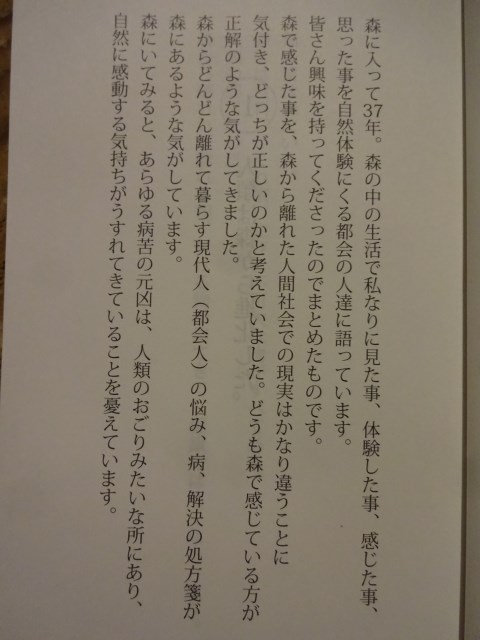 森に入って37年。森の中の生活で私なりに見た事、体験した事、感じた事、
思った事を自然体験にくる都会の人達に語っています。
皆さん興味を持ってくださったのでまとめたものです。
森で感じた事を、森から離れた人間社会での現実はかなり違うことに
気付き、どっちが正しいのかと考えていました。どうも森で感じている方が
正解のような気がしてきました。
森からどんどん離れて暮らす現代人（都会人）の悩み、病、解決の処方箋が
森にあるような気がしています。
森にいてみると、あらゆる病苦の元凶は、人類のおごりみたいな所にあり、
自然に感動する気持ちがうすれてきていることを憂えています。